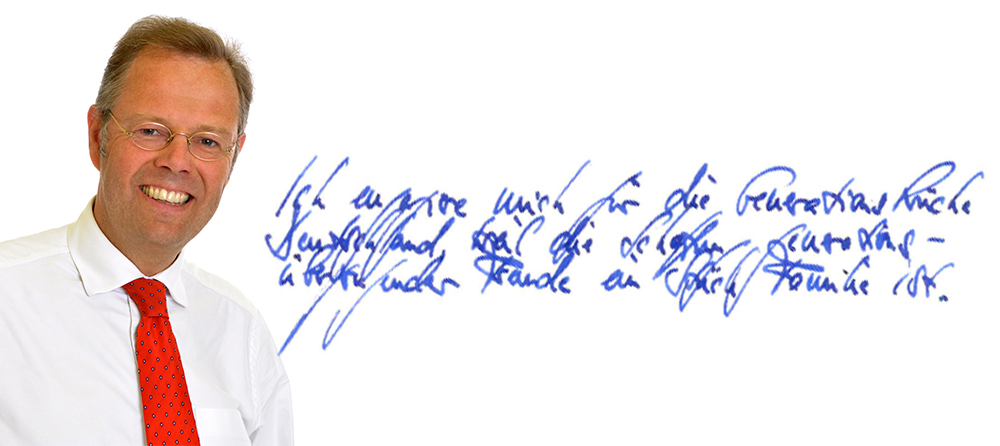 Ich engagiere mich für die Generationsbrücke
Deutschland, weil die Schaffung generations-
übergreifender Bande ein Stück Familie ist.